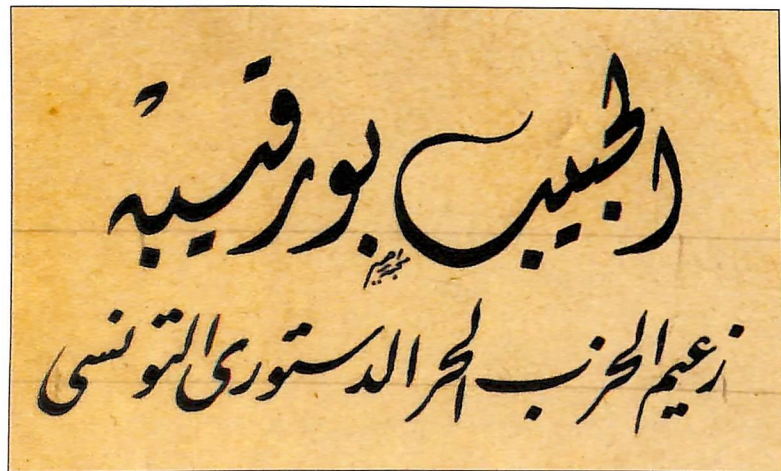 الحبيب بورقيبه
زعيم الحزب الحر الدستورى التونسى